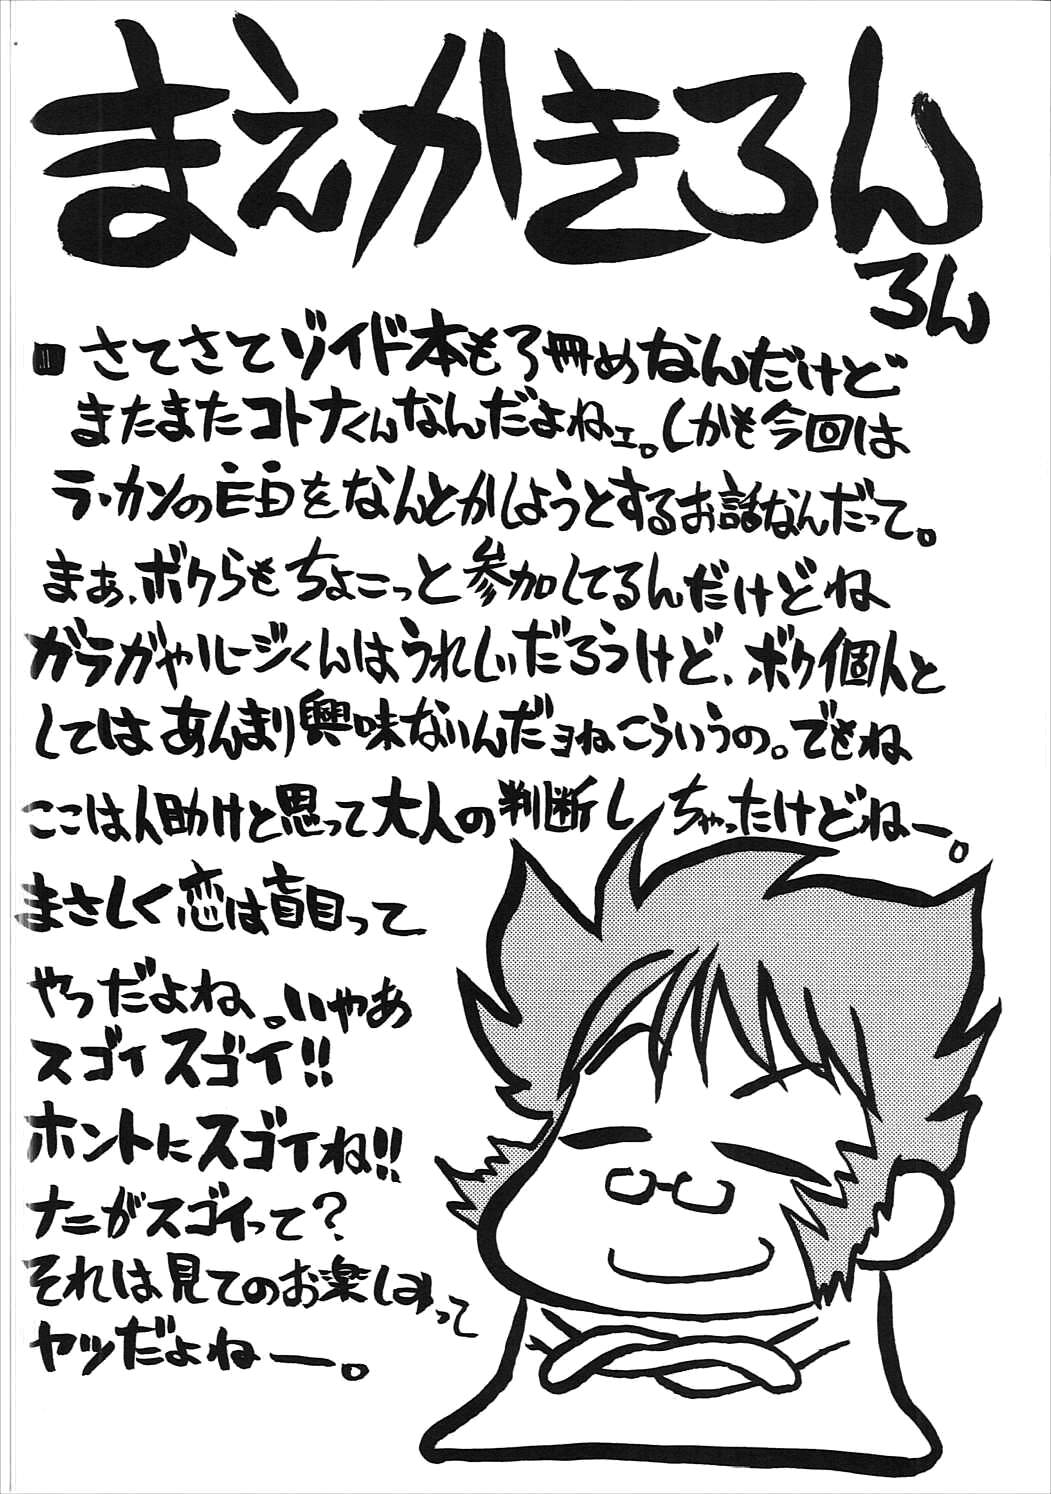 まえかきろん
ろん
■さてさてゾイド本も3冊めなんだけど
またまたコトナくんなんだよねェ。しかも今回は
ラ・カンのEDをなんとかしようとするお話なんだって。
まぁ、ボクらもちょこっと参加してるんだけどね
ガラガャルージくんはうれしいだろうけど、ボク個人と
してはあんまり興味ないんだョねこういうの。でもね
ここは人助けと思って大人の判断しちゃったけどねー。
まさしく恋は盲目って
やつだよね、。いやあ
スゴイスゴイ!!
ホントにスゴイね!!
ナニがスゴイって?
それは見てのお楽しみって
ヤツだよねー。